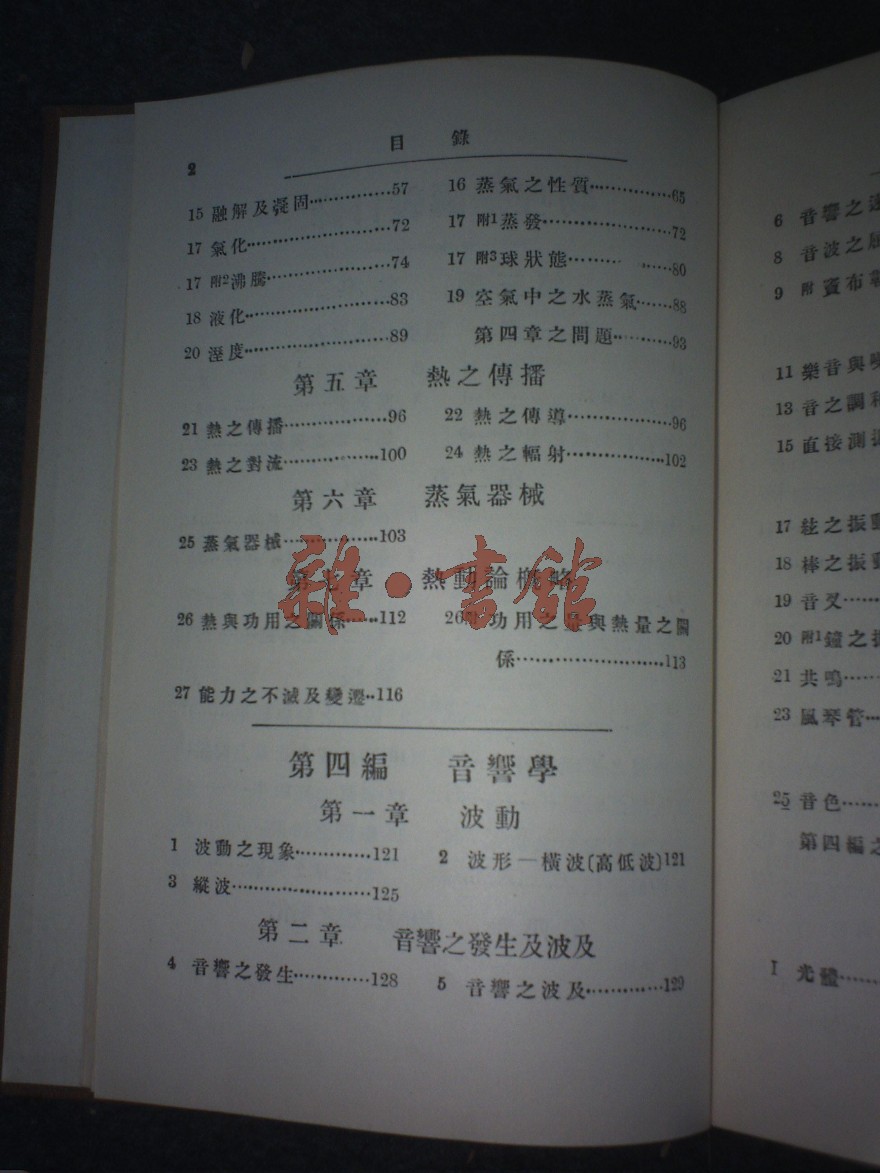 2
目錄
15 融解及凝固……………57 16 蒸氣之性質……………65
17 氣化……………72 17 附1蒸發……………72
17 附2沸騰……………74 17 附3球狀態……………80
18 液化……………83 19 空氣中之水蒸氣……88
20 溼度……………89 第四章之問題……93
第五章 熱之傳播
21 熱之傳播……………96 22 熱之傳導……………96
23 熱之對流……………100 24 熱之輻射……………102
第六章 蒸氣器械
25 蒸氣器械……………103
第七章 熱動論概略
雜·書館
26 熱與功用之關係……112 26 功用之量與熱量之關
係……………………113
27 能力之不滅及變遷…116
第四編 音響學
第一章 波動
1 波動之現象…………121 2 波形—橫波〔高低波〕121
3 縱波……………………125
第二章 音響之發生及波及
4 音響之發生…………128 5 音響之波及…………129
6 音響之
8 音波之
9 附
11 樂音與
13 音之調和
15 直接測
17 絃之振動
18 棒之振動
19 音叉……
20 附1鐘之
21 共鳴……
23 風琴管…
25 音色……
第四編之
1 光體……